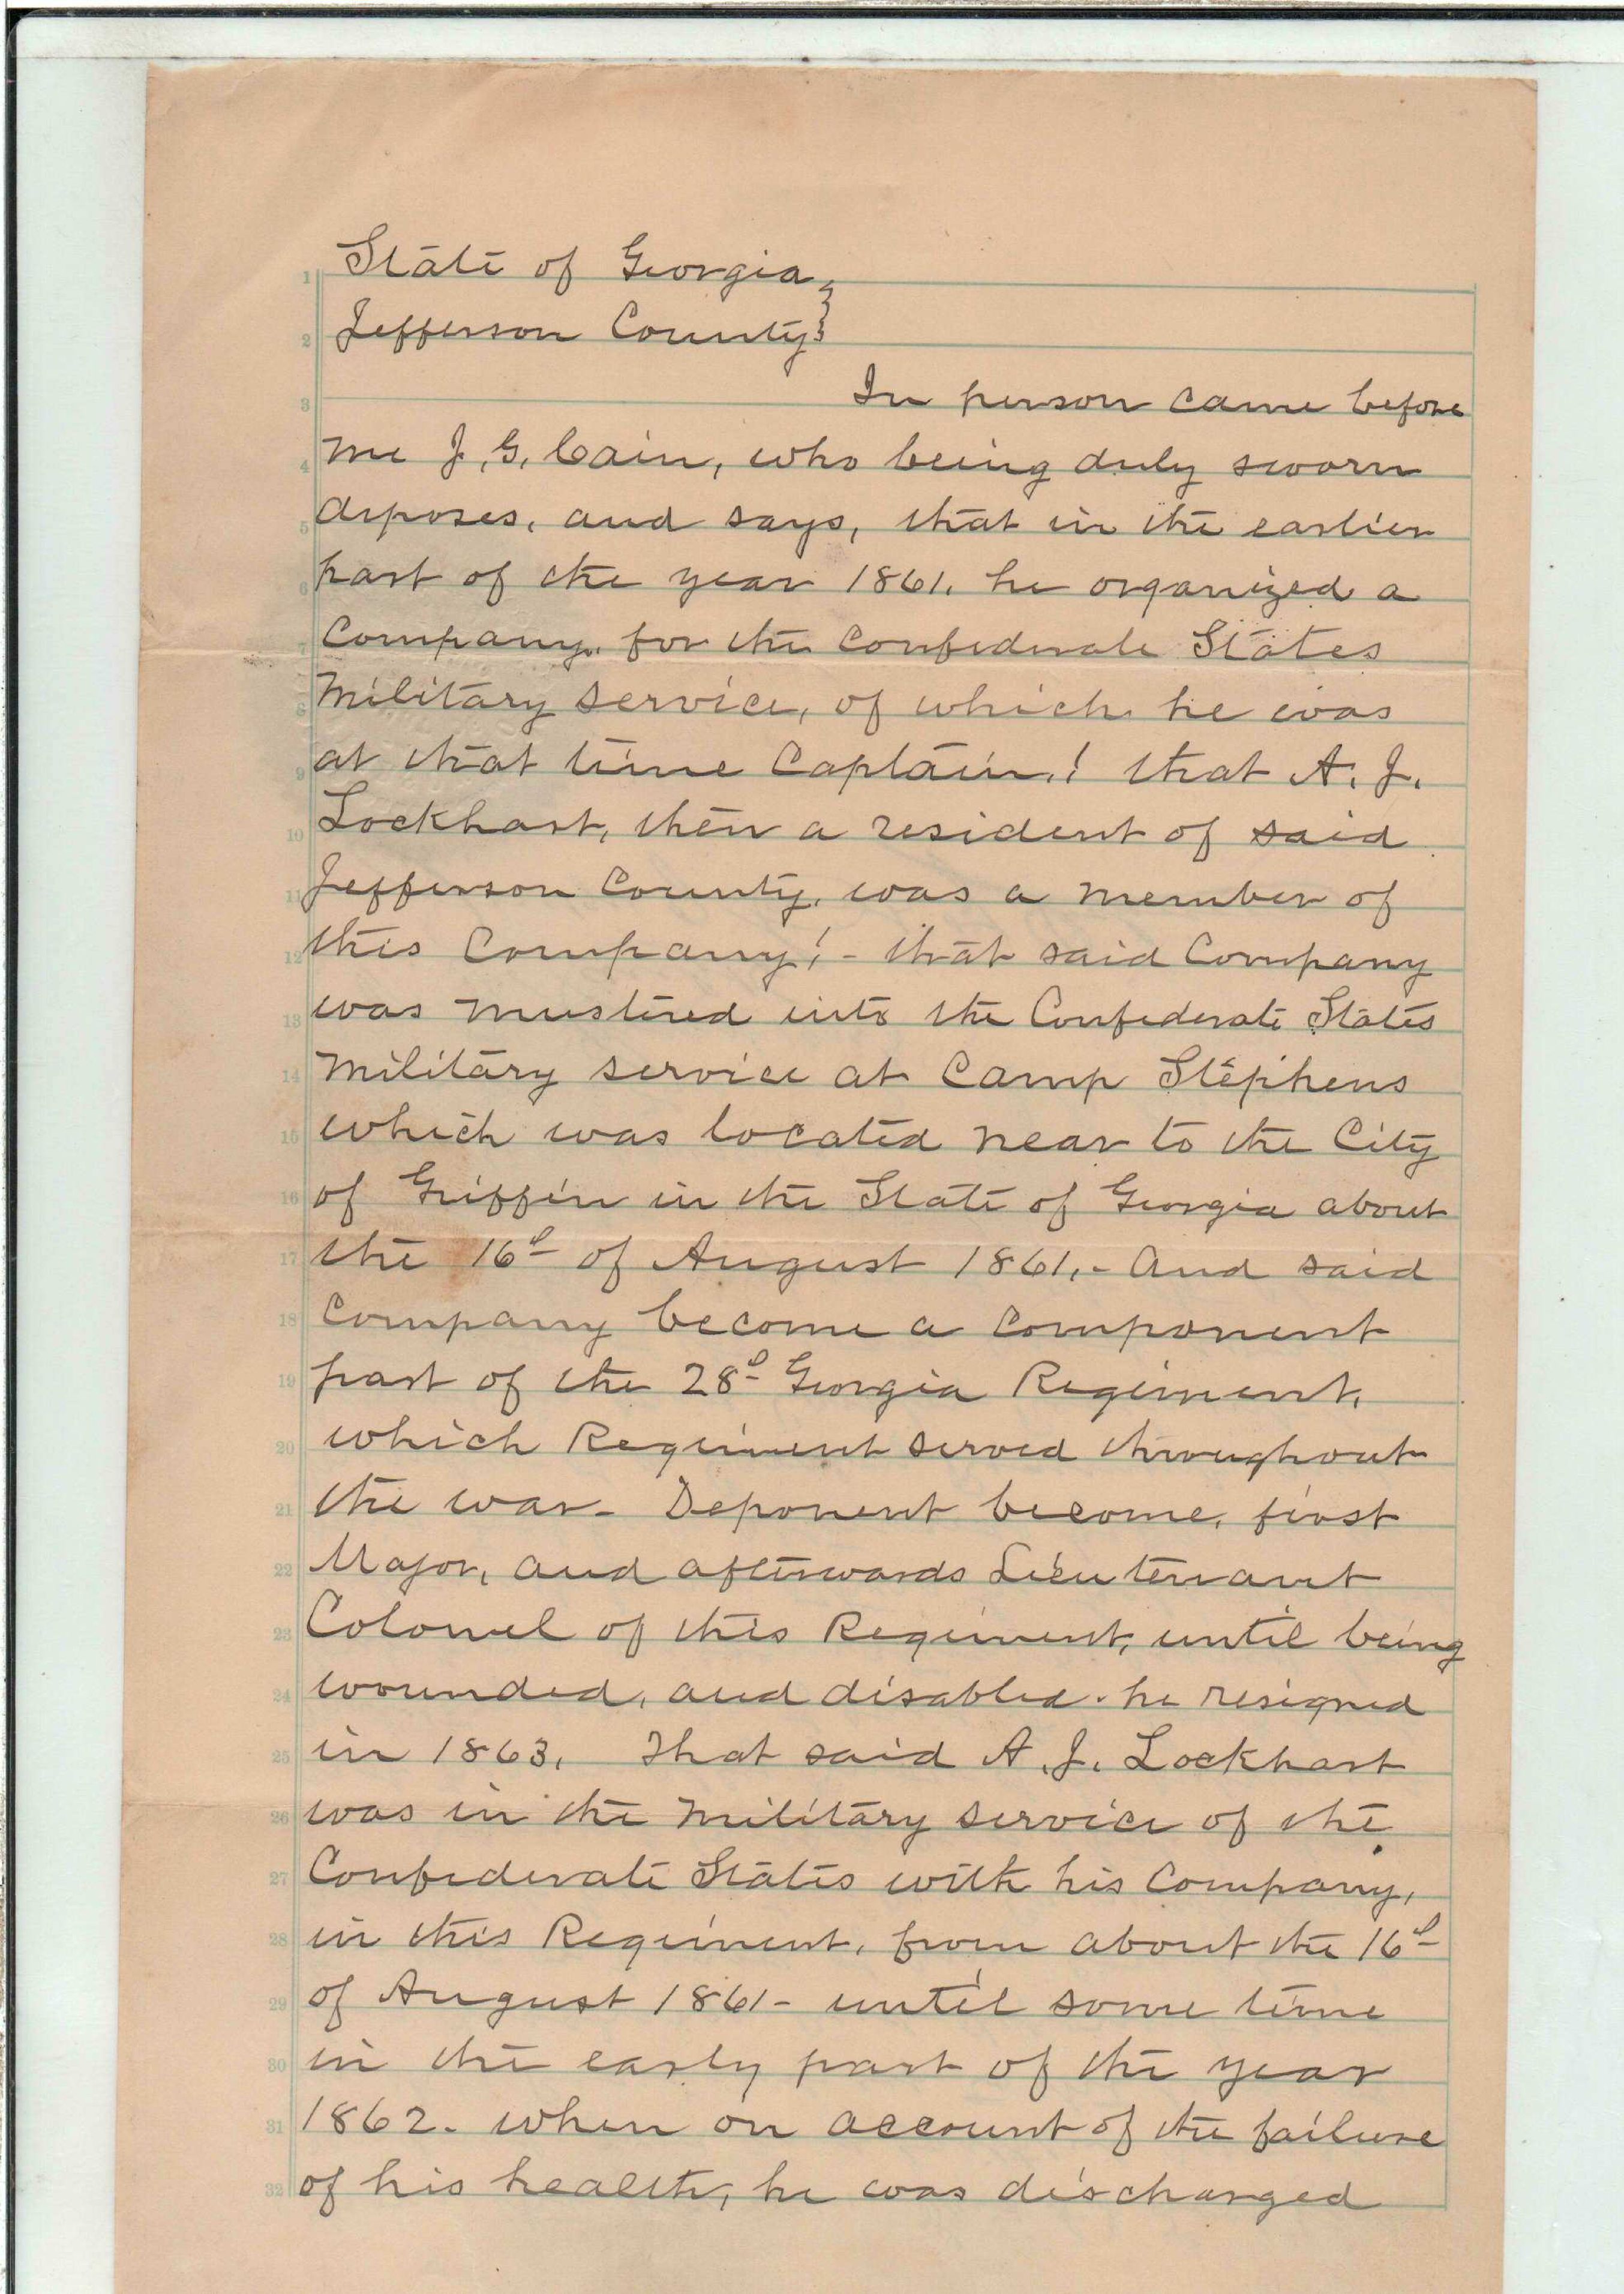 1 State of Georgia }
2 Jefferson County }
3 In person came before
4 me J. G. Cain, who being duly sworn
5 deposes, and says, that in the earlier
6 part of the year 1861. he organized a
7 Company, for the Confederate States
8 Military service, of which he was
9 at that time Captain,! that A. J.
10 Lockhart, then a resident of said
11 Jefferson County, was a member of
12 this Company! - that said Company
13 was mustered into the Confederate States
14 Military service at Camp Stephens
15 which was located near to the City
16 of Griffin in the State of Georgia about
17 the 16th of August 1861, - and said
18 Company become a component
19 part of the 28th Georgia Regiment,
20 which Regiment served throughout
21 the war - Deponent become, first
22 Major, and afterwards Lieutenant
23 Colonel of this Regiment, until being
24 wounded, and disabled. he resigned
25 in 1863. That said A. J. Lockhart
26 was in the military service of the
27 Confederate States with his Company,
28 in this Regiment, from about the 16th
29 of August 1861 - until some time
30 in the early part of the year
31 1862. when on account of the failure
32 of his health, he was discharged